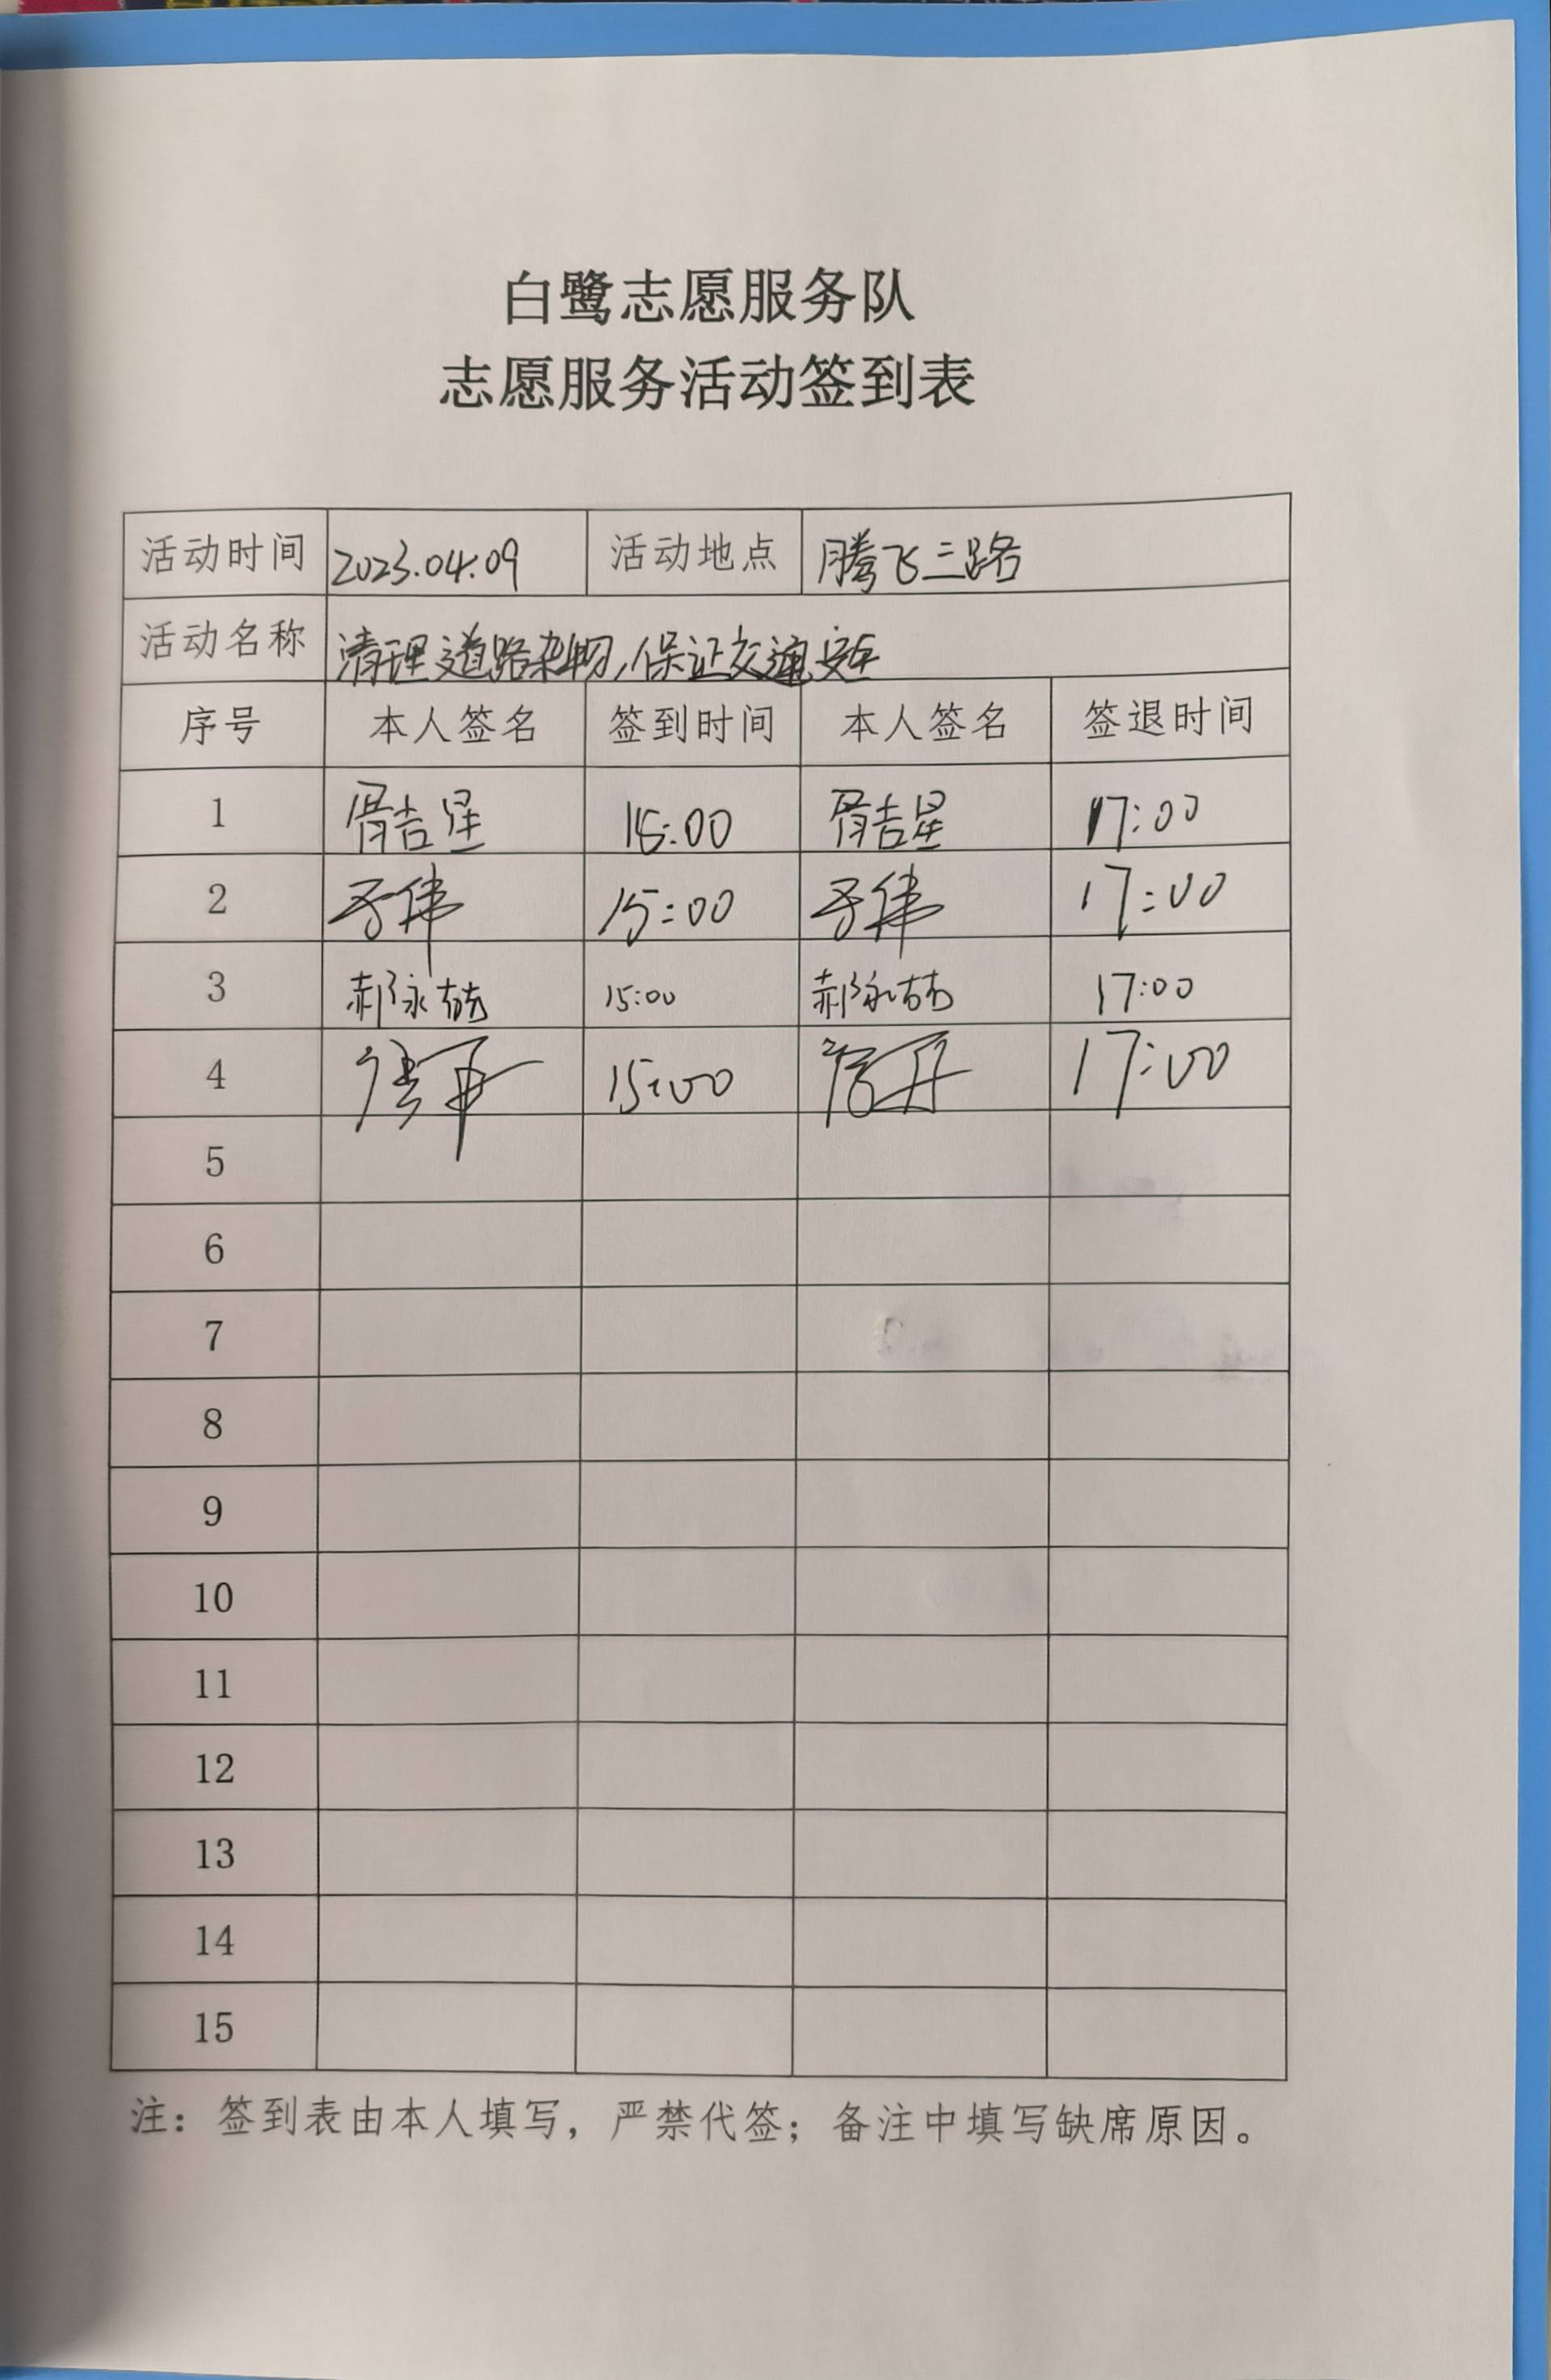 白鹭志愿服务队
志愿服务活动签到表
活动时间 2023.04.09 活动地点 腾飞三路
活动名称 清理道路杂物,保证交通安全
序号 本人签名 签到时间 本人签名 签退时间
1 胥吉星 15:00 胥吉星 17:00
2 15:00 17:00
3 郝永喆 15:00 郝永喆 17:00
4 15:00 17:00
5
6
7
8
9
10
11
12
13
14
15
注：签到表由本人填写，严禁代签；备注中填写缺席原因。